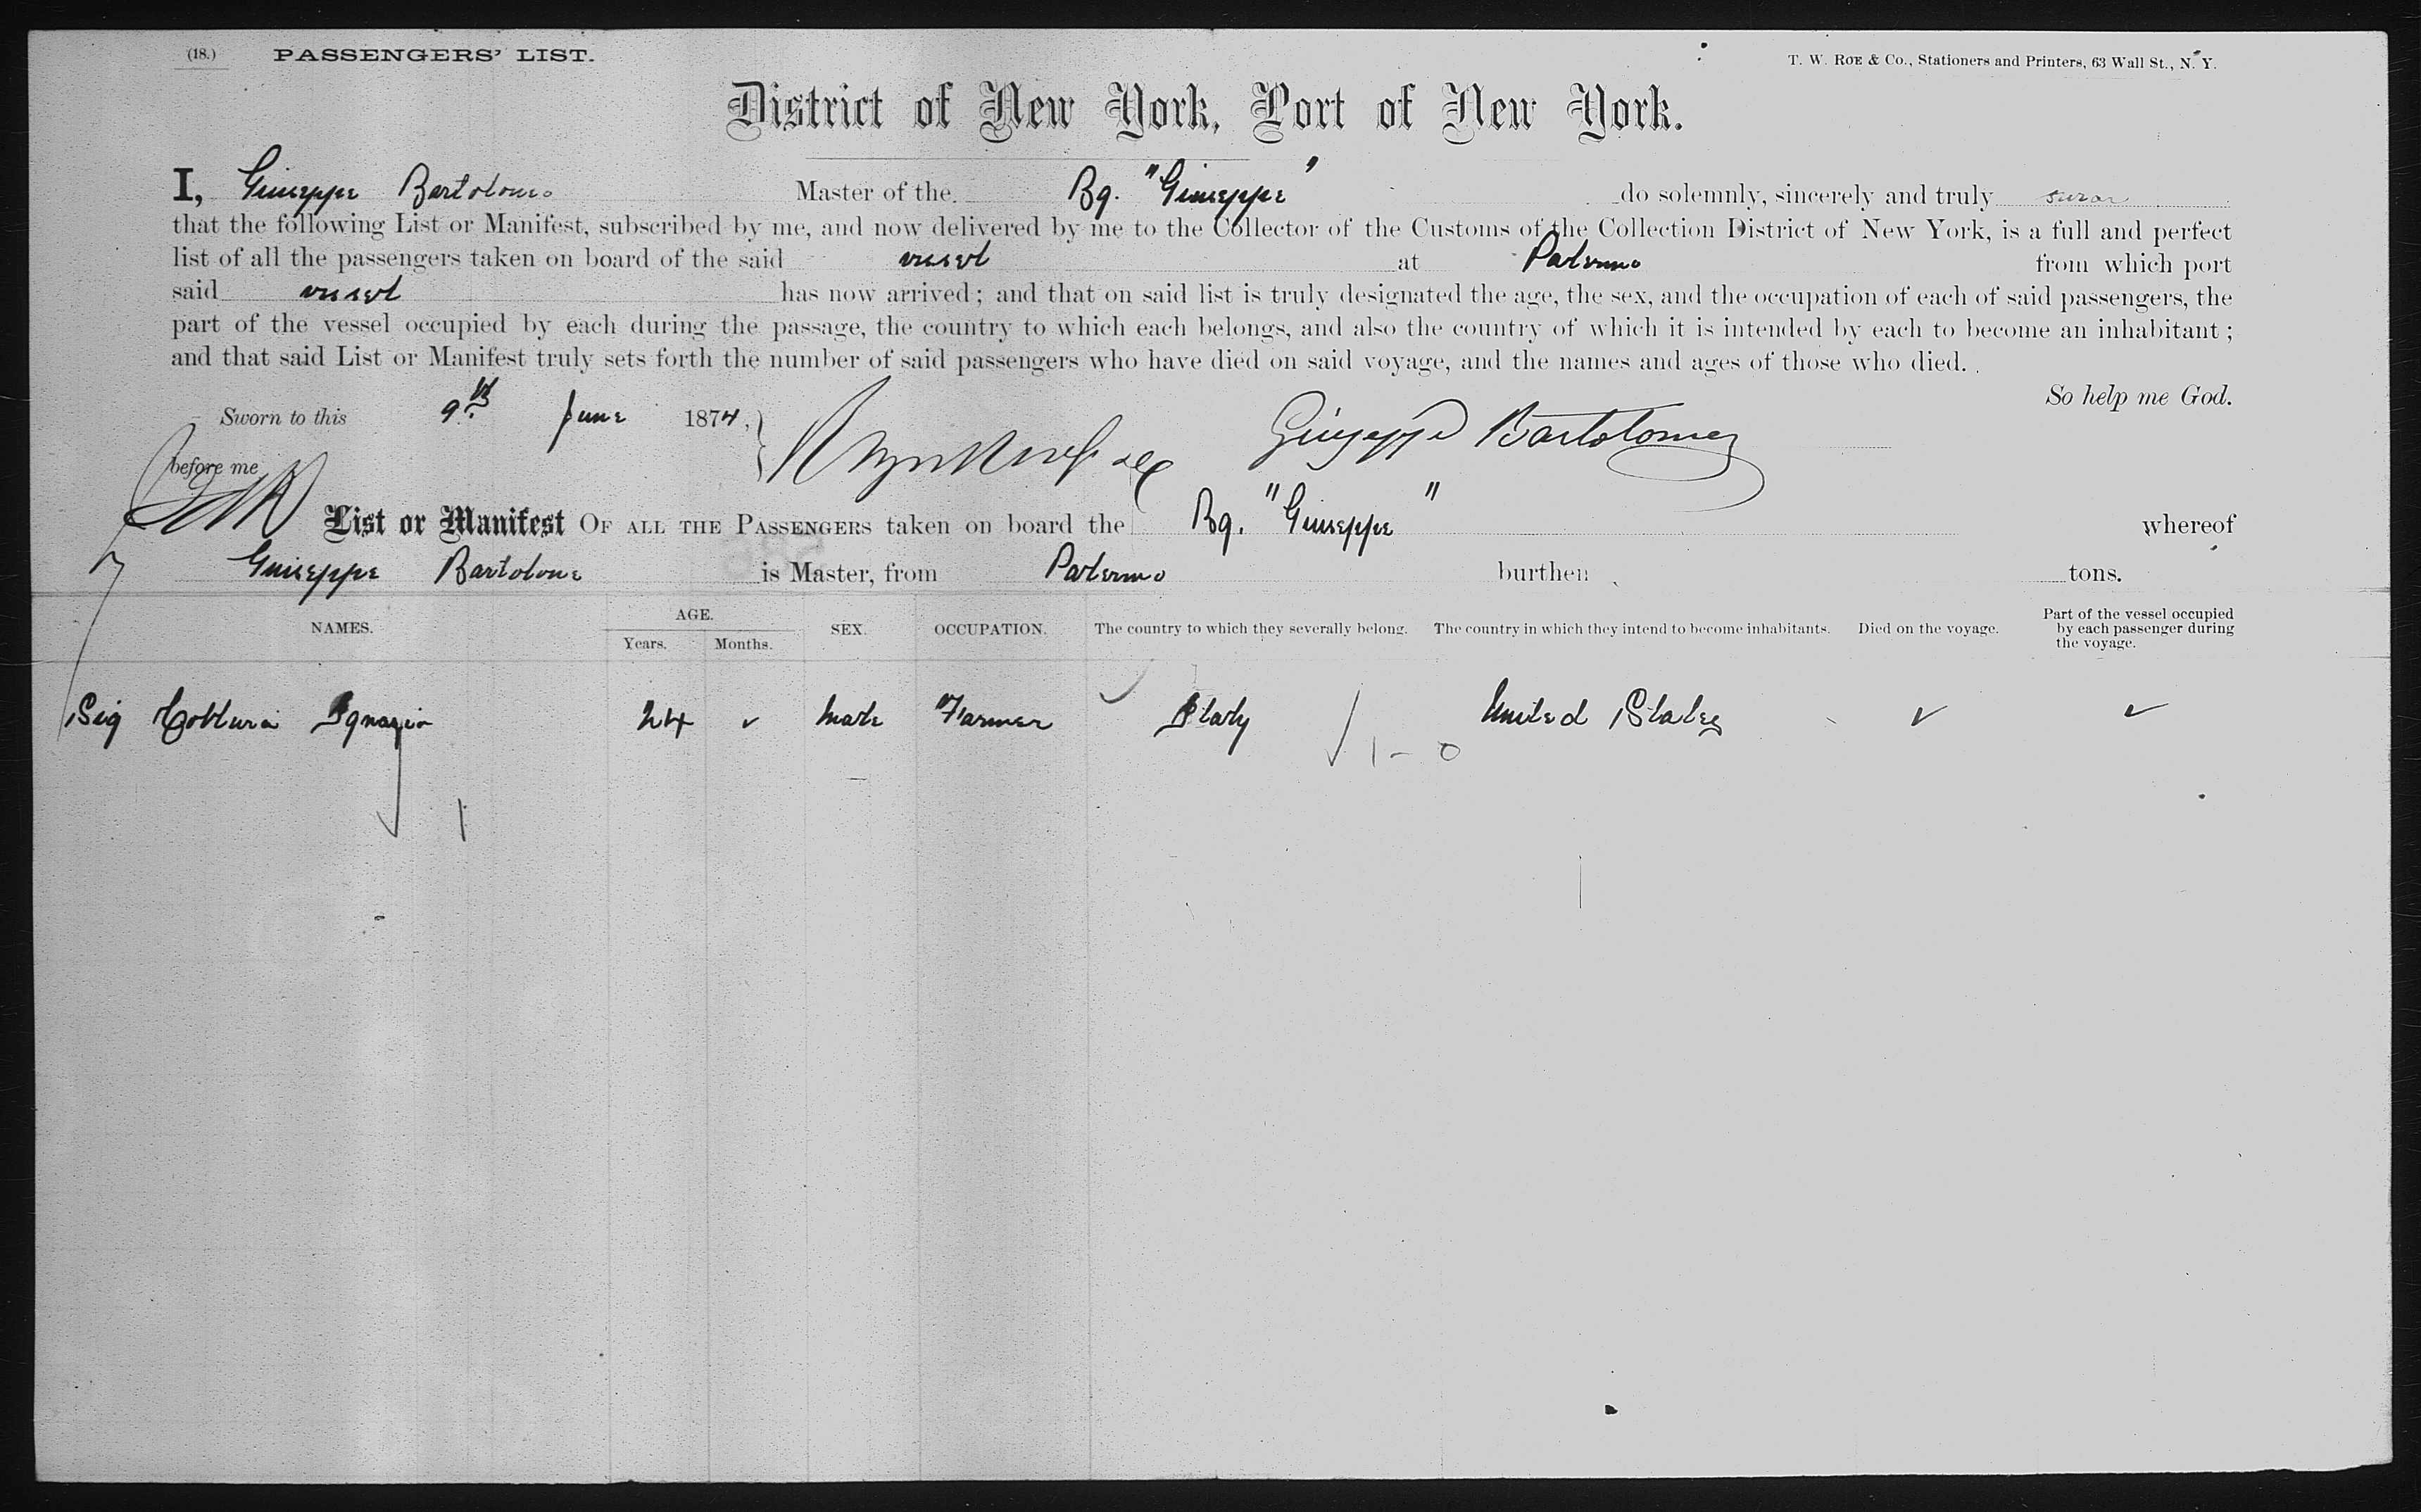 (18.) PASSENGERS' LIST. T. W. ROE & Co., Stationers and Printers, 63 Wall St., N. Y.
District of New York, Port of New York.
I, Giuseppe Bartolomeo Master of the Bg. "Giuseppe" do solemnly, sincerely and truly swear
that the following List or Manifest, subscribed by me, and now delivered by me to the Collector of the Customs of the Collection District of New York, is a full and perfect
list of all the passengers taken on board of the said vessel at Palermo from which port
said vessel has now arrived; and that on said list is truly designated the age, the sex, and the occupation of each of said passengers, the
part of the vessel occupied by each during the passage, the country to which each belongs, and also the country of which it is intended by each to become an inhabitant;
and that said List or Manifest truly sets forth the number of said passengers who have died on said voyage, and the names and ages of those who died.
So help me God.
Sworn to this 9th June 1874, Giuseppe Bartolomeo
before me
List or Manifest OF ALL THE PASSENGERS taken on board the Bg. "Giuseppe" whereof
Giuseppe Bartolome is Master, from Palermo burthen tons.
NAMES. AGE. Years. Months. SEX. OCCUPATION. The country to which they severally belong. The country in which they intend to become inhabitants. Died on the voyage. Part of the vessel occupied by each passenger during the voyage.
Sig Ignazio 24 ✓ Male Farmer Italy United States ✓ ✓
√ 1 - 0
√ 1